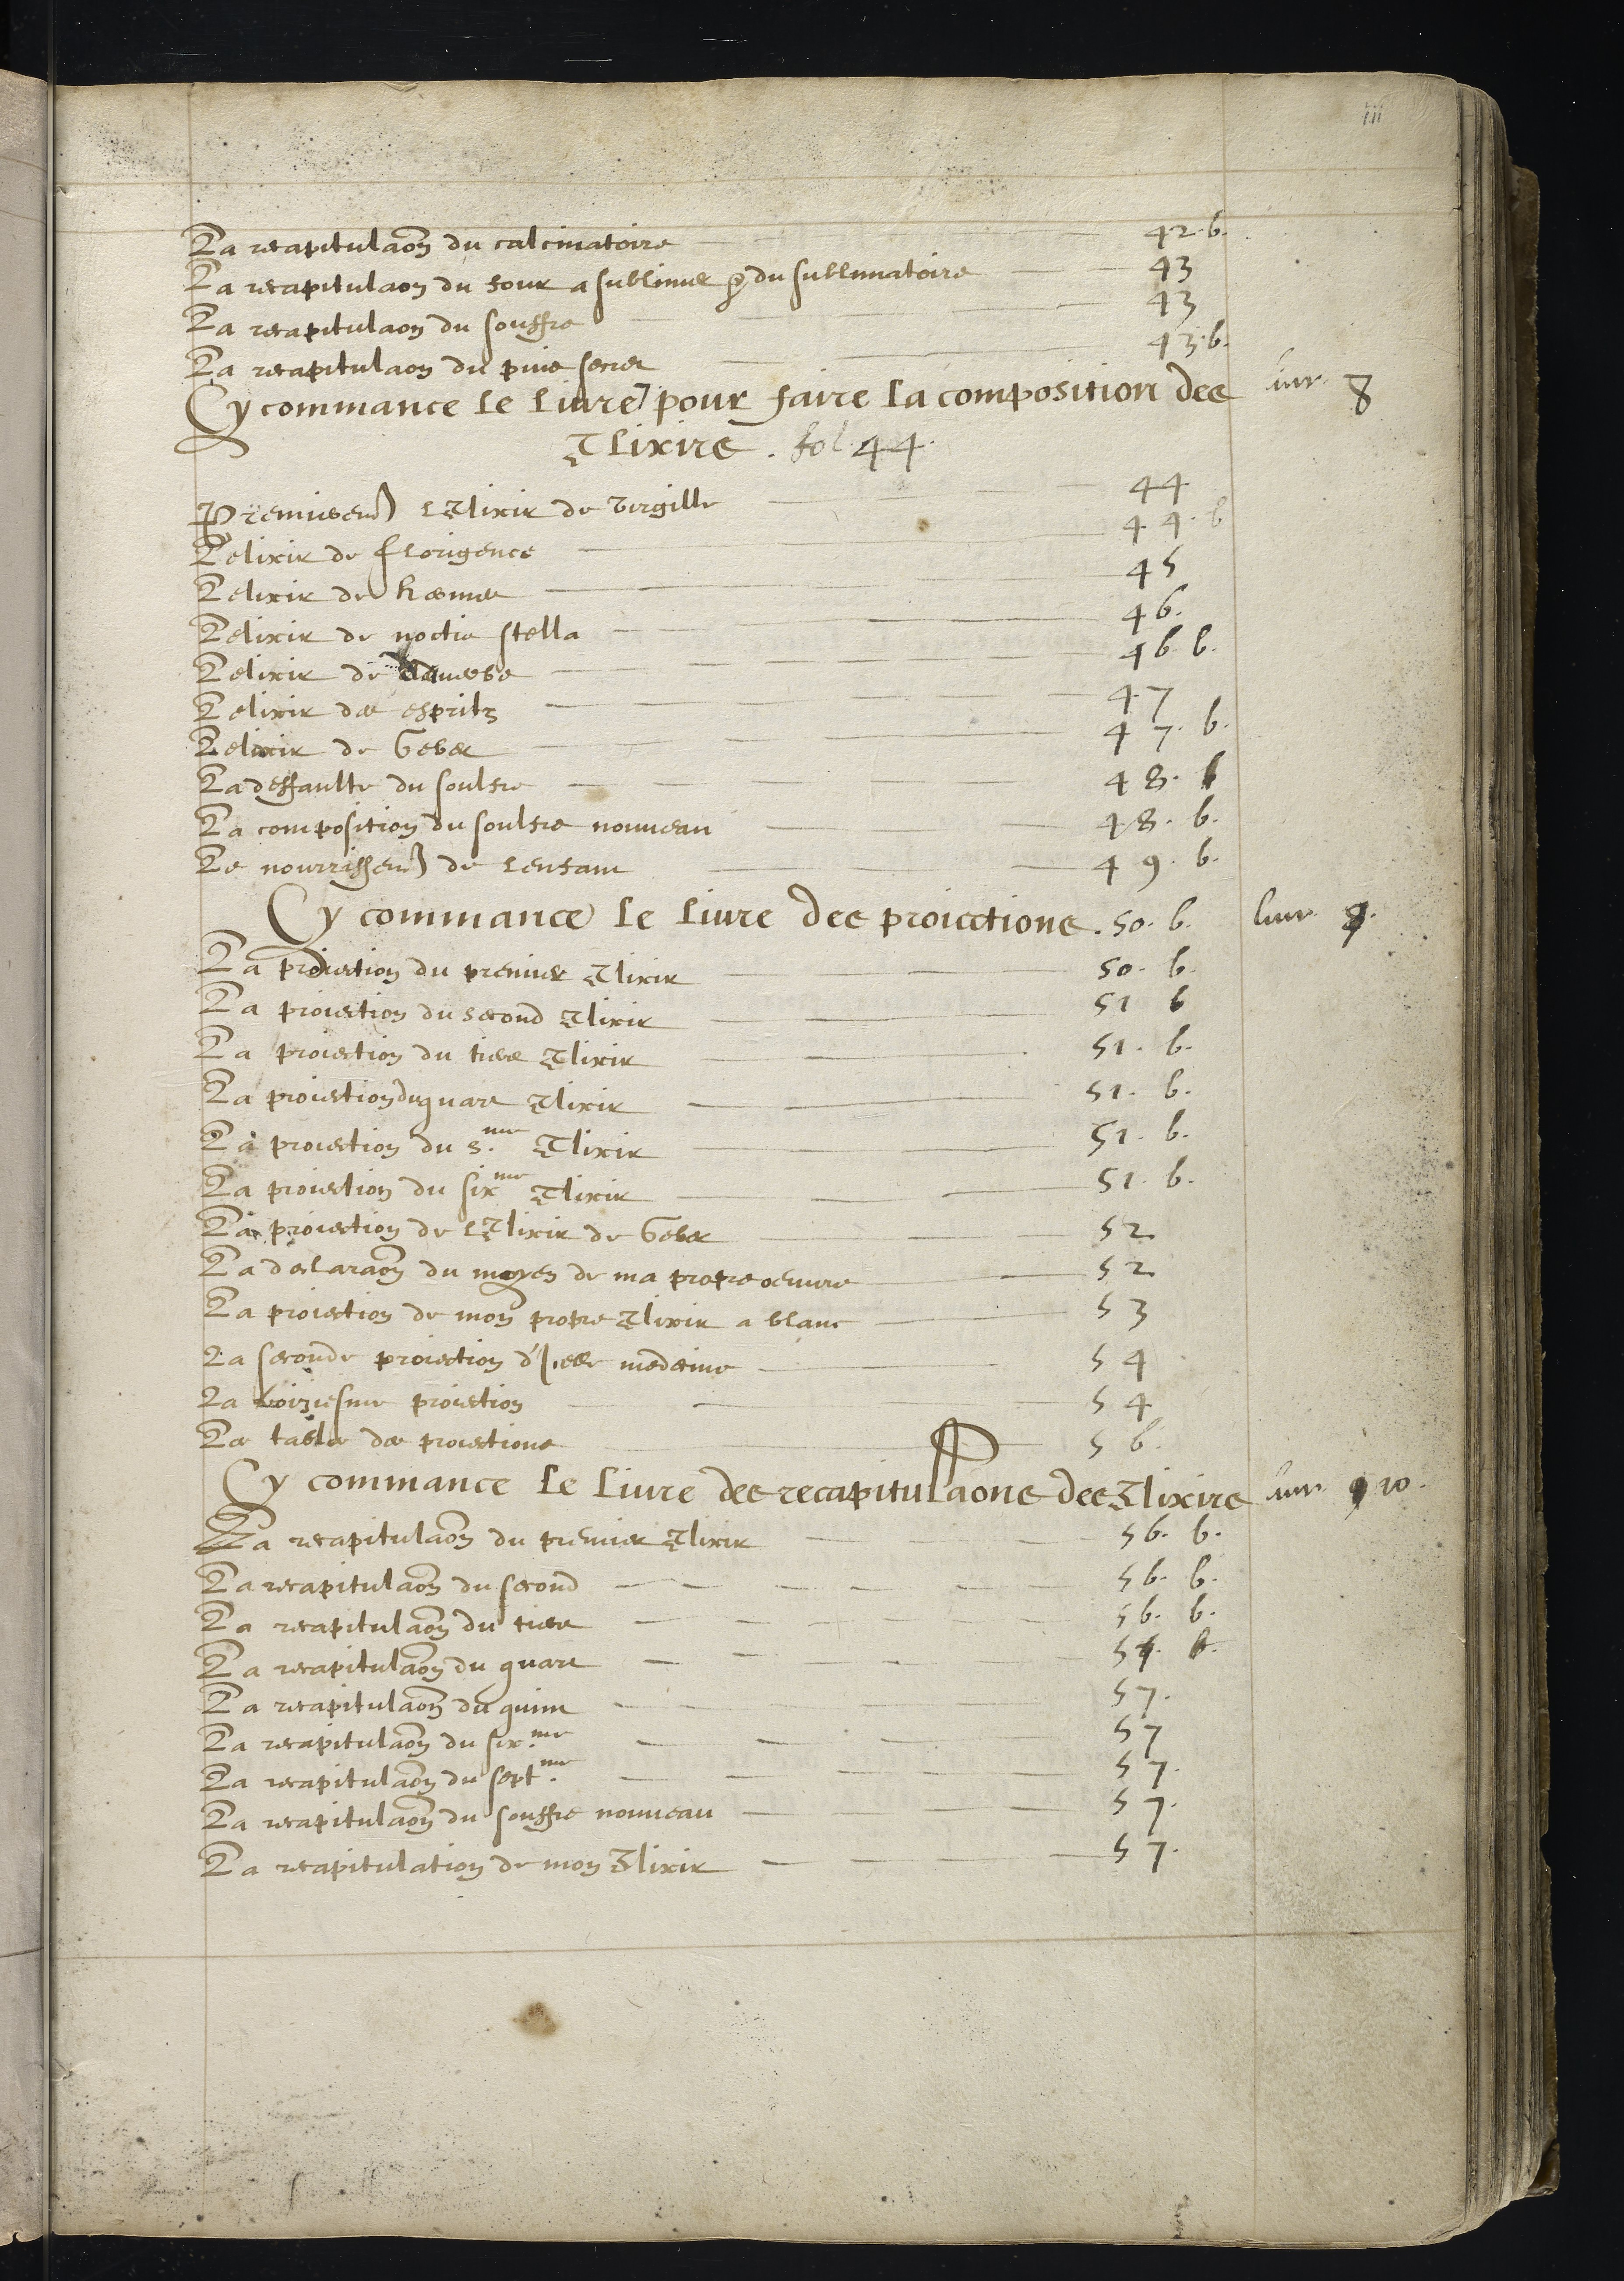 iii
La recapitulaon du calcinatoire 42. b.
La recapitulaon du four a sublimer & du sublimatoire 43
La recapitulaon du souffre 43
La recapitulaon du puis secret 43. b.
Cy commance le livre pour faire la composition des livr. 8
Elixirs. fol. 44.
Premierem lElixir de Virgille 44
Lelixir de florigence 44. b
Lelixir de 45
Lelixir de noctis stella 46.
Lelixir de 46 b.
Lelixir des espritz 47
Lelixir de Geber 47. b.
La deffaulte du soulfre 48. b
La composition du soulfre nouveau 48. b.
Le nourrissem de lenfant 49. b.
Cy commance le livre des proiections. 50. b. livr. 9.
La proiection du premier Elixir 50. b.
La proiection du second Elixir 51 b
La proiection du tiers Elixir 51. b.
La proiection du quart Elixir 51. b.
La proiection du 5.me Elixir 51. b.
La proiection du sixme Elixir 51. b.
La proiection de lElixir de Geber 52
La declaraon du moyen de ma propre oeuvre 52
La proiection de mon propre Elixir a blanc 53
La seconde proiection dicelle medecine 54
La proiection 54
Les tables des proiections 56.
Cy commance le livre des recapitulaons des Elixirs livr. 9 10.
La recapitulaon du premier Elixir 56. b.
La recapitulaon du second 56. b.
La recapitulaon du tiers 56. b.
La recapitulaon du quart 57. b.
La recapitulaon du quint 57.
La recapitulaon du six.me 57
La recapitulaon du sept.me 57.
La recapitulaon du souffre nouveau 57.
La recapitulation de mon Elixir 57.